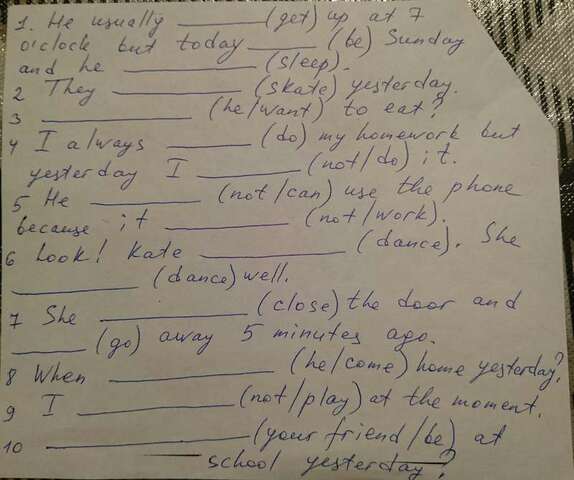 1. He usually ________ (get) up at 7
o'clock but today _____ (be) Sunday
and he _________ (sleep).
2 They _________ (skate) yesterday.
3 __________ (he/want) to eat?
4 I always ______ (do) my homework but
yesterday I _______ (not/do) it.
5 He ________ (not/can) use the phone
because it ________ (not/work).
6 Look! Kate __________ (dance). She
_________ (dance) well.
7 She __________ (close) the door and
_____ (go) away 5 minutes ago.
8 When ____________ (he/come) home yesterday?
9 I ___________ (not/play) at the moment.
10 _____________ (your friend/be) at
school yesterday?